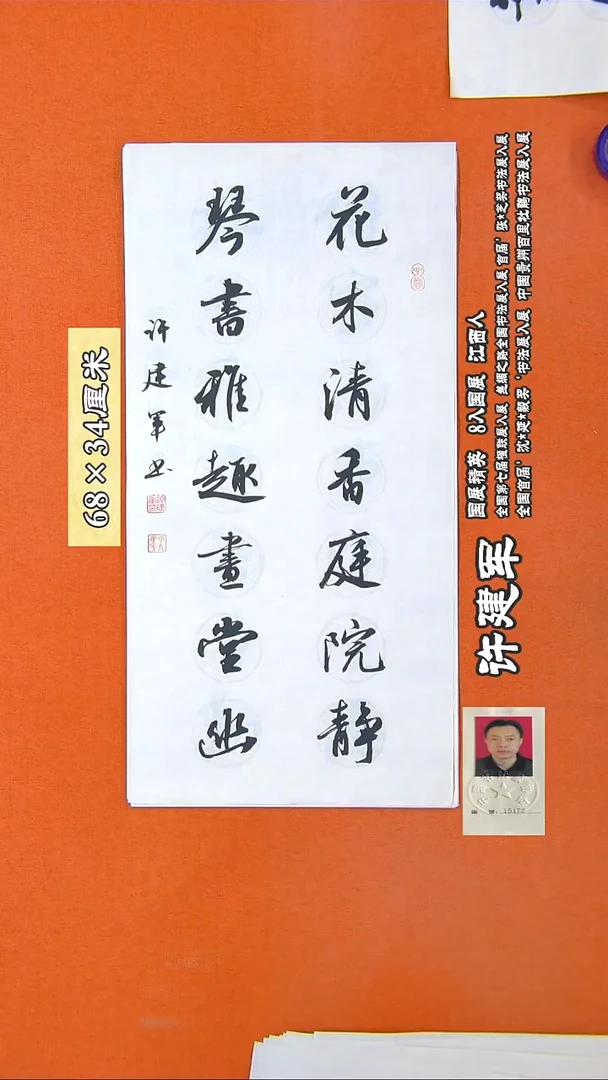 花木清香庭院静
琴書雅趣畫堂幽
许建軍书
68×34厘米
国展精英 8入国展 江西人
全国第七届楹联展入展 丝绸之路全国书法展入展 首届'张★芝奖书法展入展
全国首届'沈★延★毅奖'书法展入展 中国贵州百里杜鹃书法展入展
许建军
编 号:15172